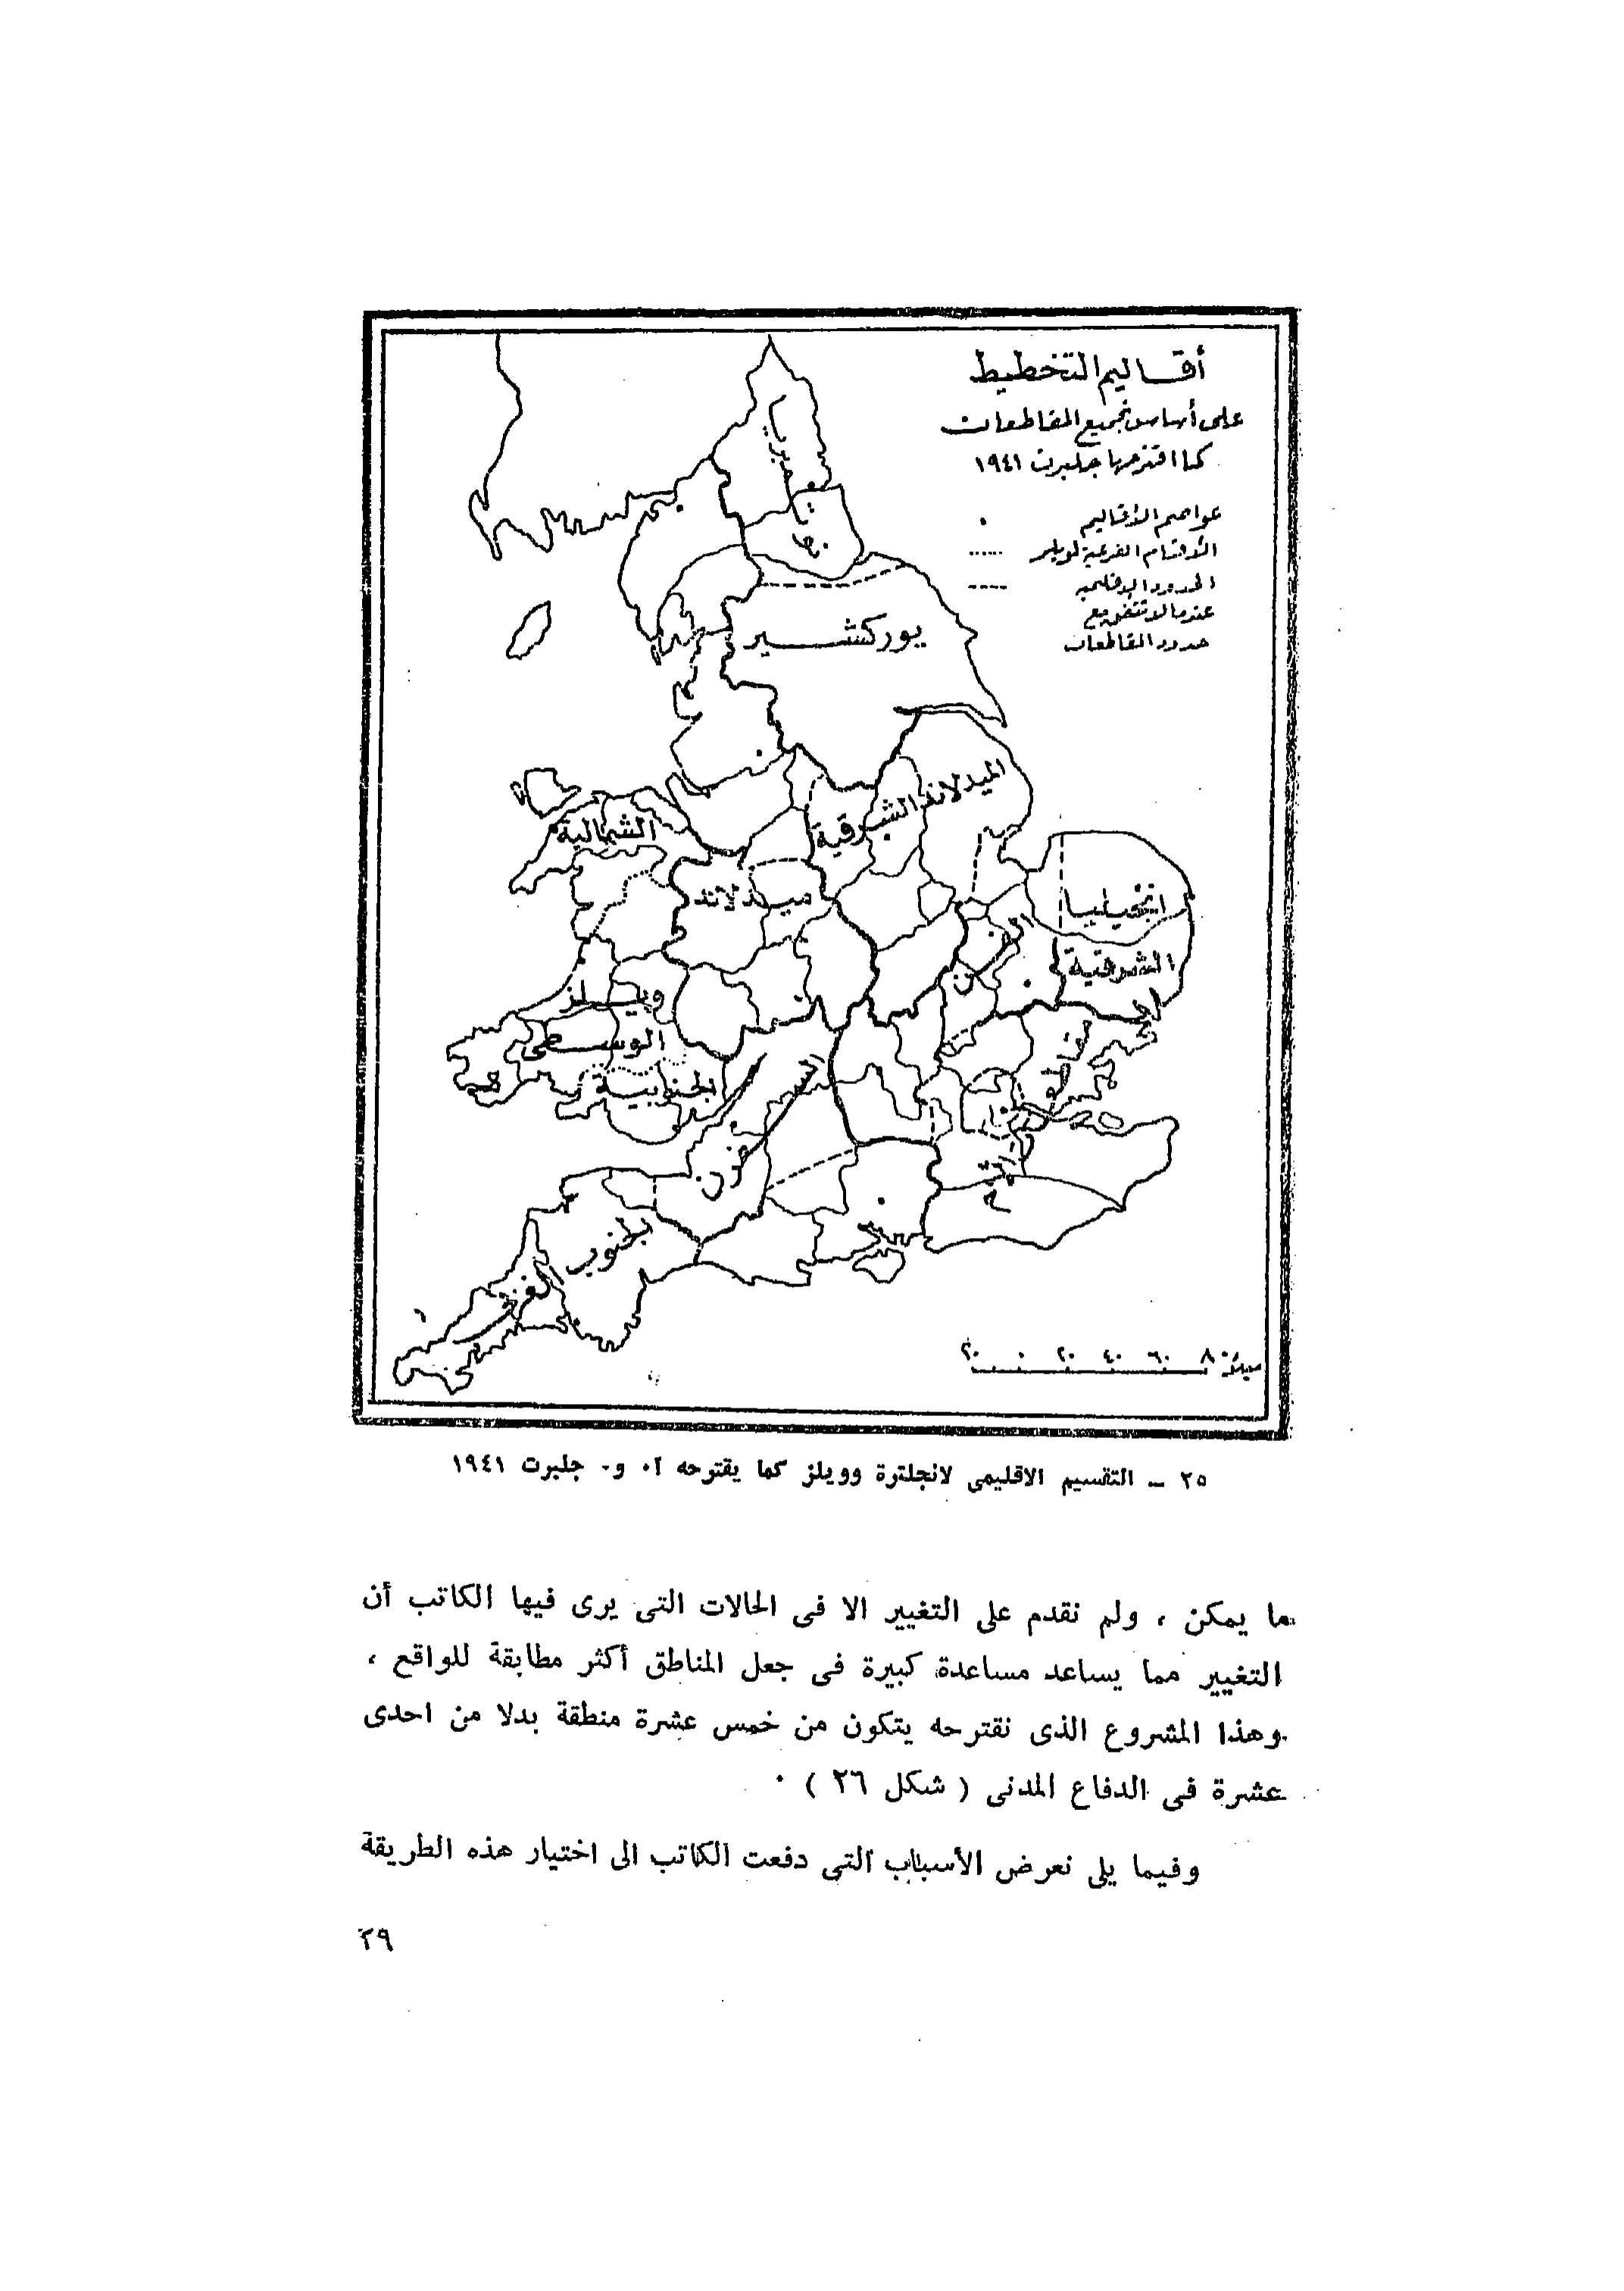 أقاليم التخطيط
على أساس تجميع المقاطعات
كما اقترحها جلبرت ١٩٤١
عواصم الأقاليم
الأقسام الفرعية لويلز
الحدود الإقليمية
عندما لا تتفق مع
حدود المقاطعات
يوركشير
الميدلاند الشرقية
الشمالية
ميدلاند
انجيليا
الشرقية
ويلز
الوسطى
الجنوبية
الجنوب الغربى
٢٠ ٠ ٢٠ ٤٠ ٦٠ ٨٠ ميلاً
٢٥ ــ التقسيم الاقليمى لانجلترة وويلز كما يقترحه ا٠ و٠ جلبرت ١٩٤١
ما يمكن ، ولم نقدم على التغيير الا فى الحالات التى يرى فيها الكاتب أن
التغيير مما يساعد مساعدة كبيرة فى جعل المناطق أكثر مطابقة للواقع ،
وهذا المشروع الذى نقترحه يتكون من خمس عشرة منطقة بدلا من احدى
عشرة فى الدفاع المدنى ( شكل ٢٦ ) ٠
وفيما يلى نعرض الأسباب التى دفعت الكاتب الى اختيار هذه الطريقة
٢٩